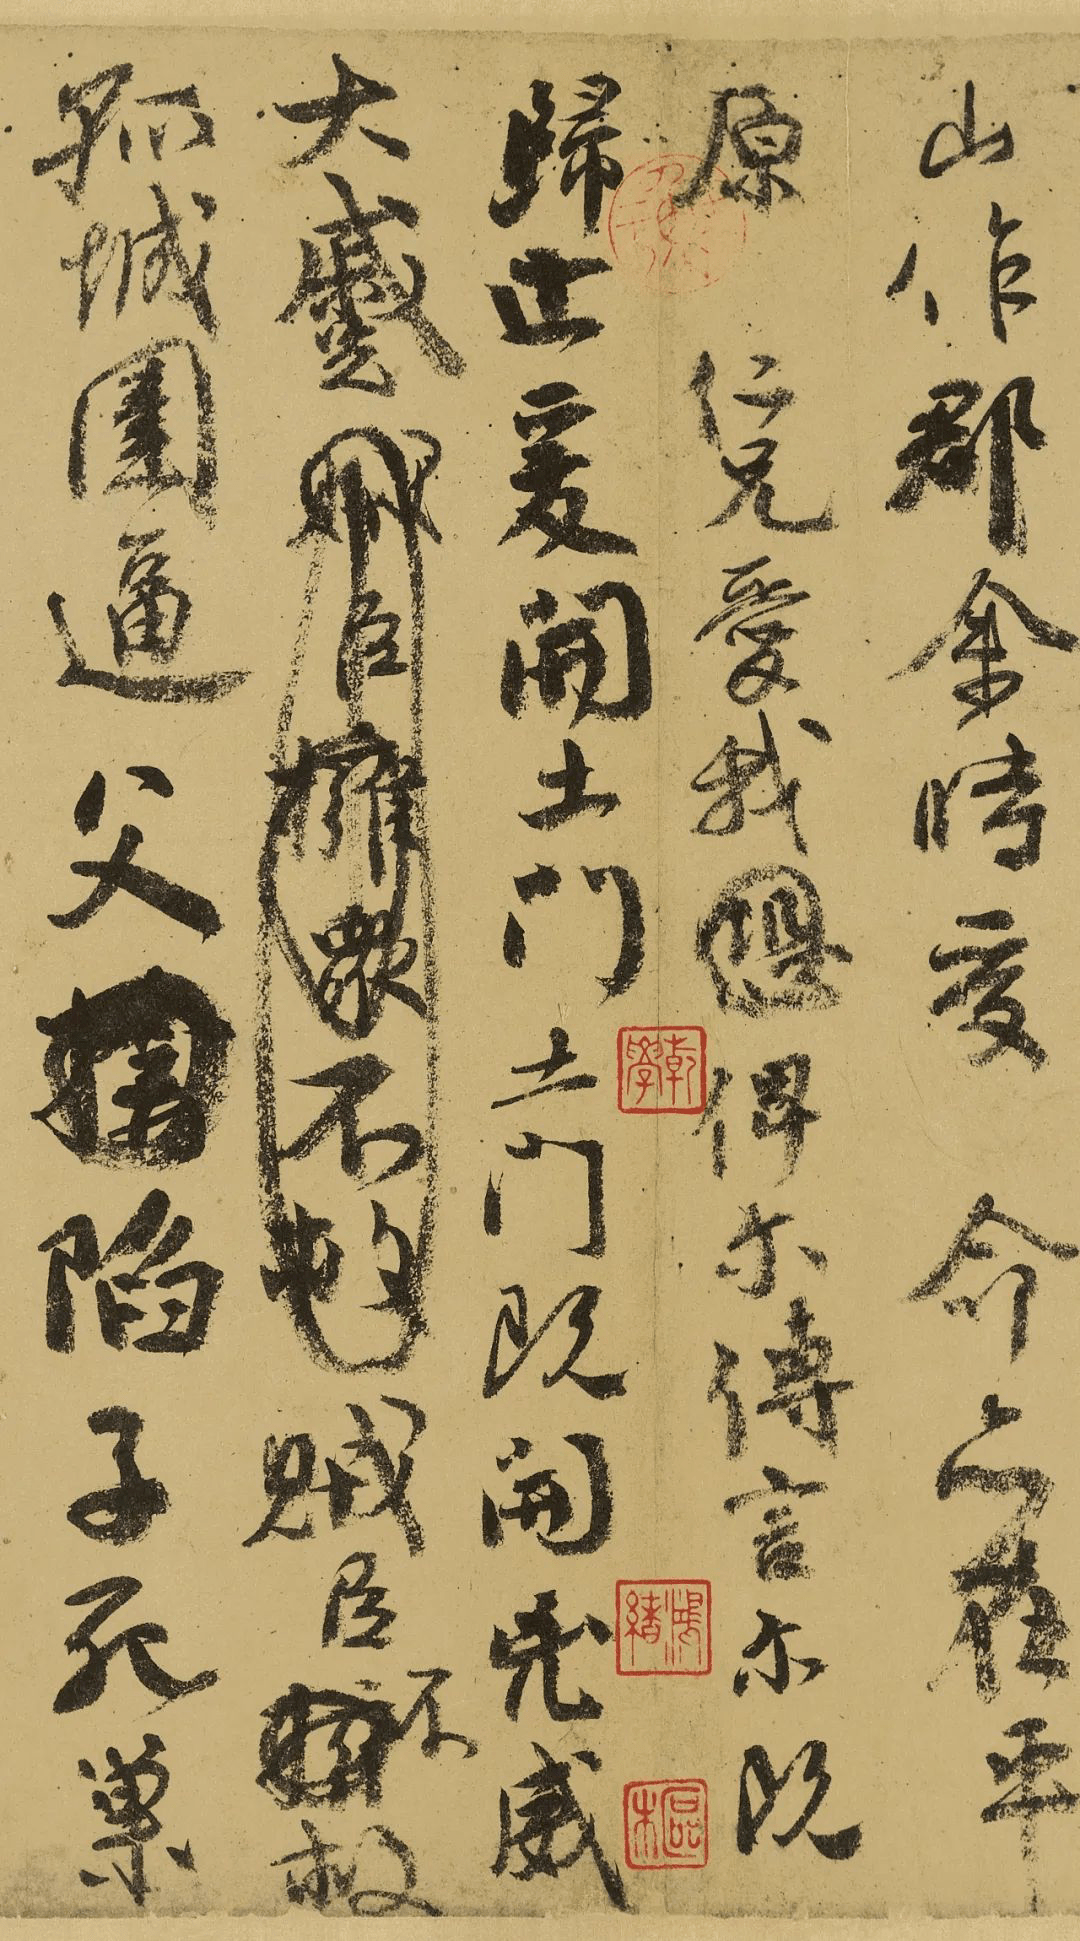 山作郡余時受命亦在平
原仁兄愛我俾尔傳言尔既
歸止爰開土門土門既開凶威
大蹙賊臣擁衆不救賊臣不救
孤城圍逼父陷子死巢
乾學
鴻緒